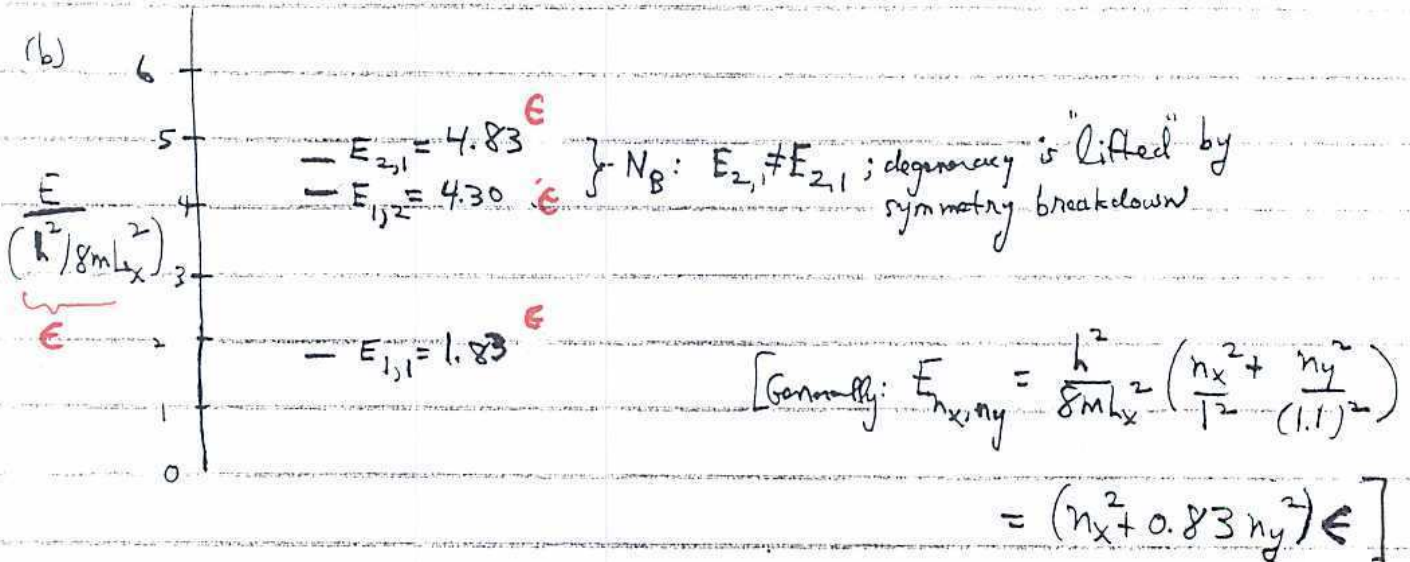 (b)
6
5
4
3
2
1
0
E
(h²/8mLₓ²)
ϵ
E₂,₁ = 4.83 ϵ
E₁,₂ = 4.30 ϵ
} N_B: E₂,₁ ≠ E₂,₁ ; degeneracy is "lifted" by
symmetry breakdown
E₁,₁ = 1.83 ϵ
[Generally: E_{nx,ny} = h²/8mLₓ² (nx²/1² + ny²/(1.1)²)
= (nx² + 0.83 ny²) ϵ ]